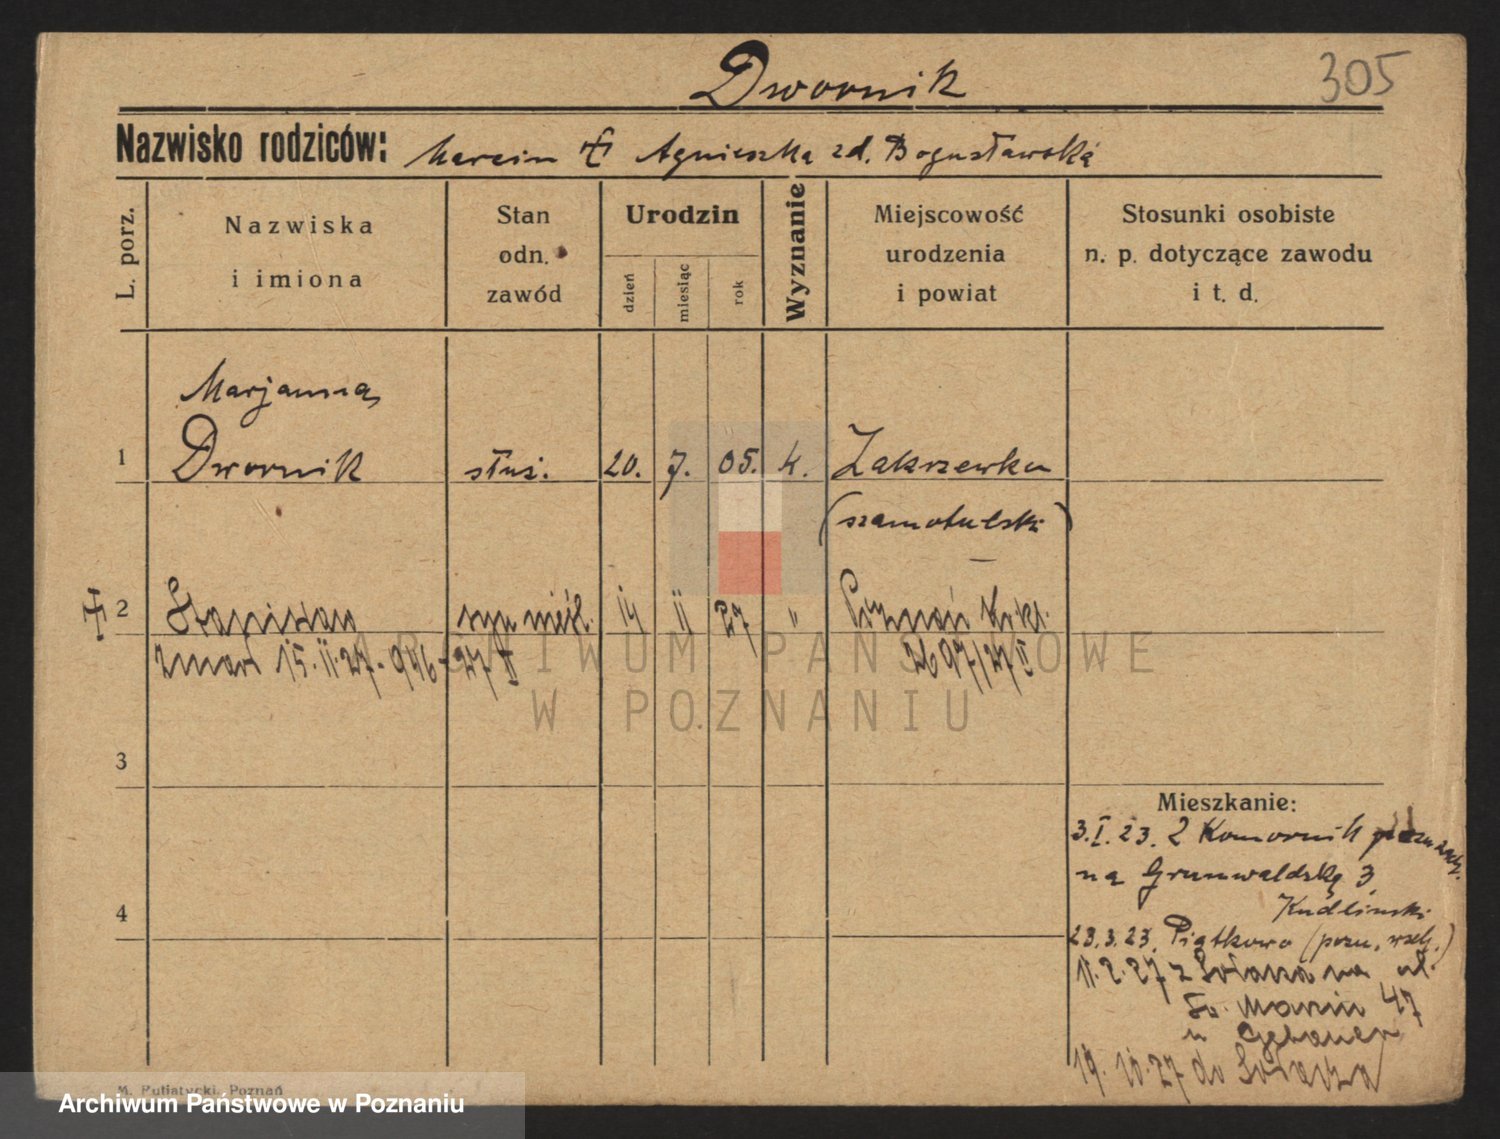 Dwornik
305
Nazwisko rodziców: Marcin Agnieszka zd. Bogusławska
L. porz.
Nazwiska
i imiona
Stan
odn.
zawód
Urodzin
dzień
miesiąc
rok
Wyznanie
Miejscowość
urodzenia
i powiat
Stosunki osobiste
n. p. dotyczące zawodu
i t. d.
Marjanna
1 Dwornik służ. 20. 7. 05. k. Zakrzewko
(szamotulski)
2 Stanisław syn nieśl. 14 II 27 " Poznań
zmarł 15.II.27 - 946 - 27 2697/27 II
3
4
Mieszkanie:
3.I.23. z Komornik
na Grunwaldską 3
23.3.23. Piątkowo (pozn. wsch.)
11.2.27 z Sołacza na ul.
Św. Marcin 47
u
19.10.27 do Sołacza
M. Putiatycki, Poznań
ARCHIWUM PAŃSTWOWE
W POZNANIU
Archiwum Państwowe w Poznaniu